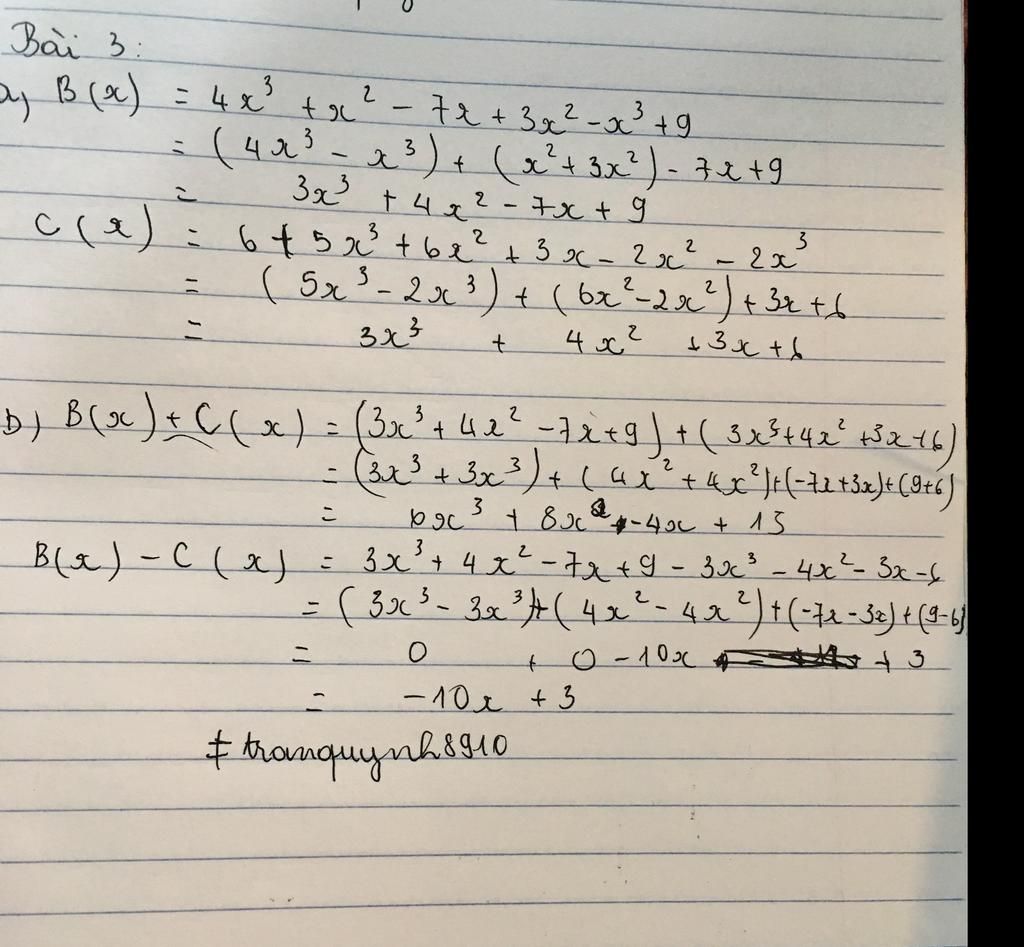 Bài 3:
a, B(x) = 4x³ + x² - 7x + 3x² - x³ + 9
= (4x³ - x³) + (x² + 3x²) - 7x + 9
= 3x³ + 4x² - 7x + 9
C(x) = 6 + 5x³ + 6x² + 3x - 2x² - 2x³
= (5x³ - 2x³) + (6x² - 2x²) + 3x + 6
= 3x³ + 4x² + 3x + 6
b) B(x) + C(x) = (3x³ + 4x² - 7x + 9) + (3x³ + 4x² + 3x + 6)
= (3x³ + 3x³) + (4x² + 4x²) + (-7x + 3x) + (9 + 6)
= 6x³ + 8x² - 4x + 15
B(x) - C(x) = 3x³ + 4x² - 7x + 9 - 3x³ - 4x² - 3x - 6
= (3x³ - 3x³) + (4x² - 4x²) + (-7x - 3x) + (9 - 6)
= 0 + 0 - 10x + 3
= -10x + 3
# tranquynh8910